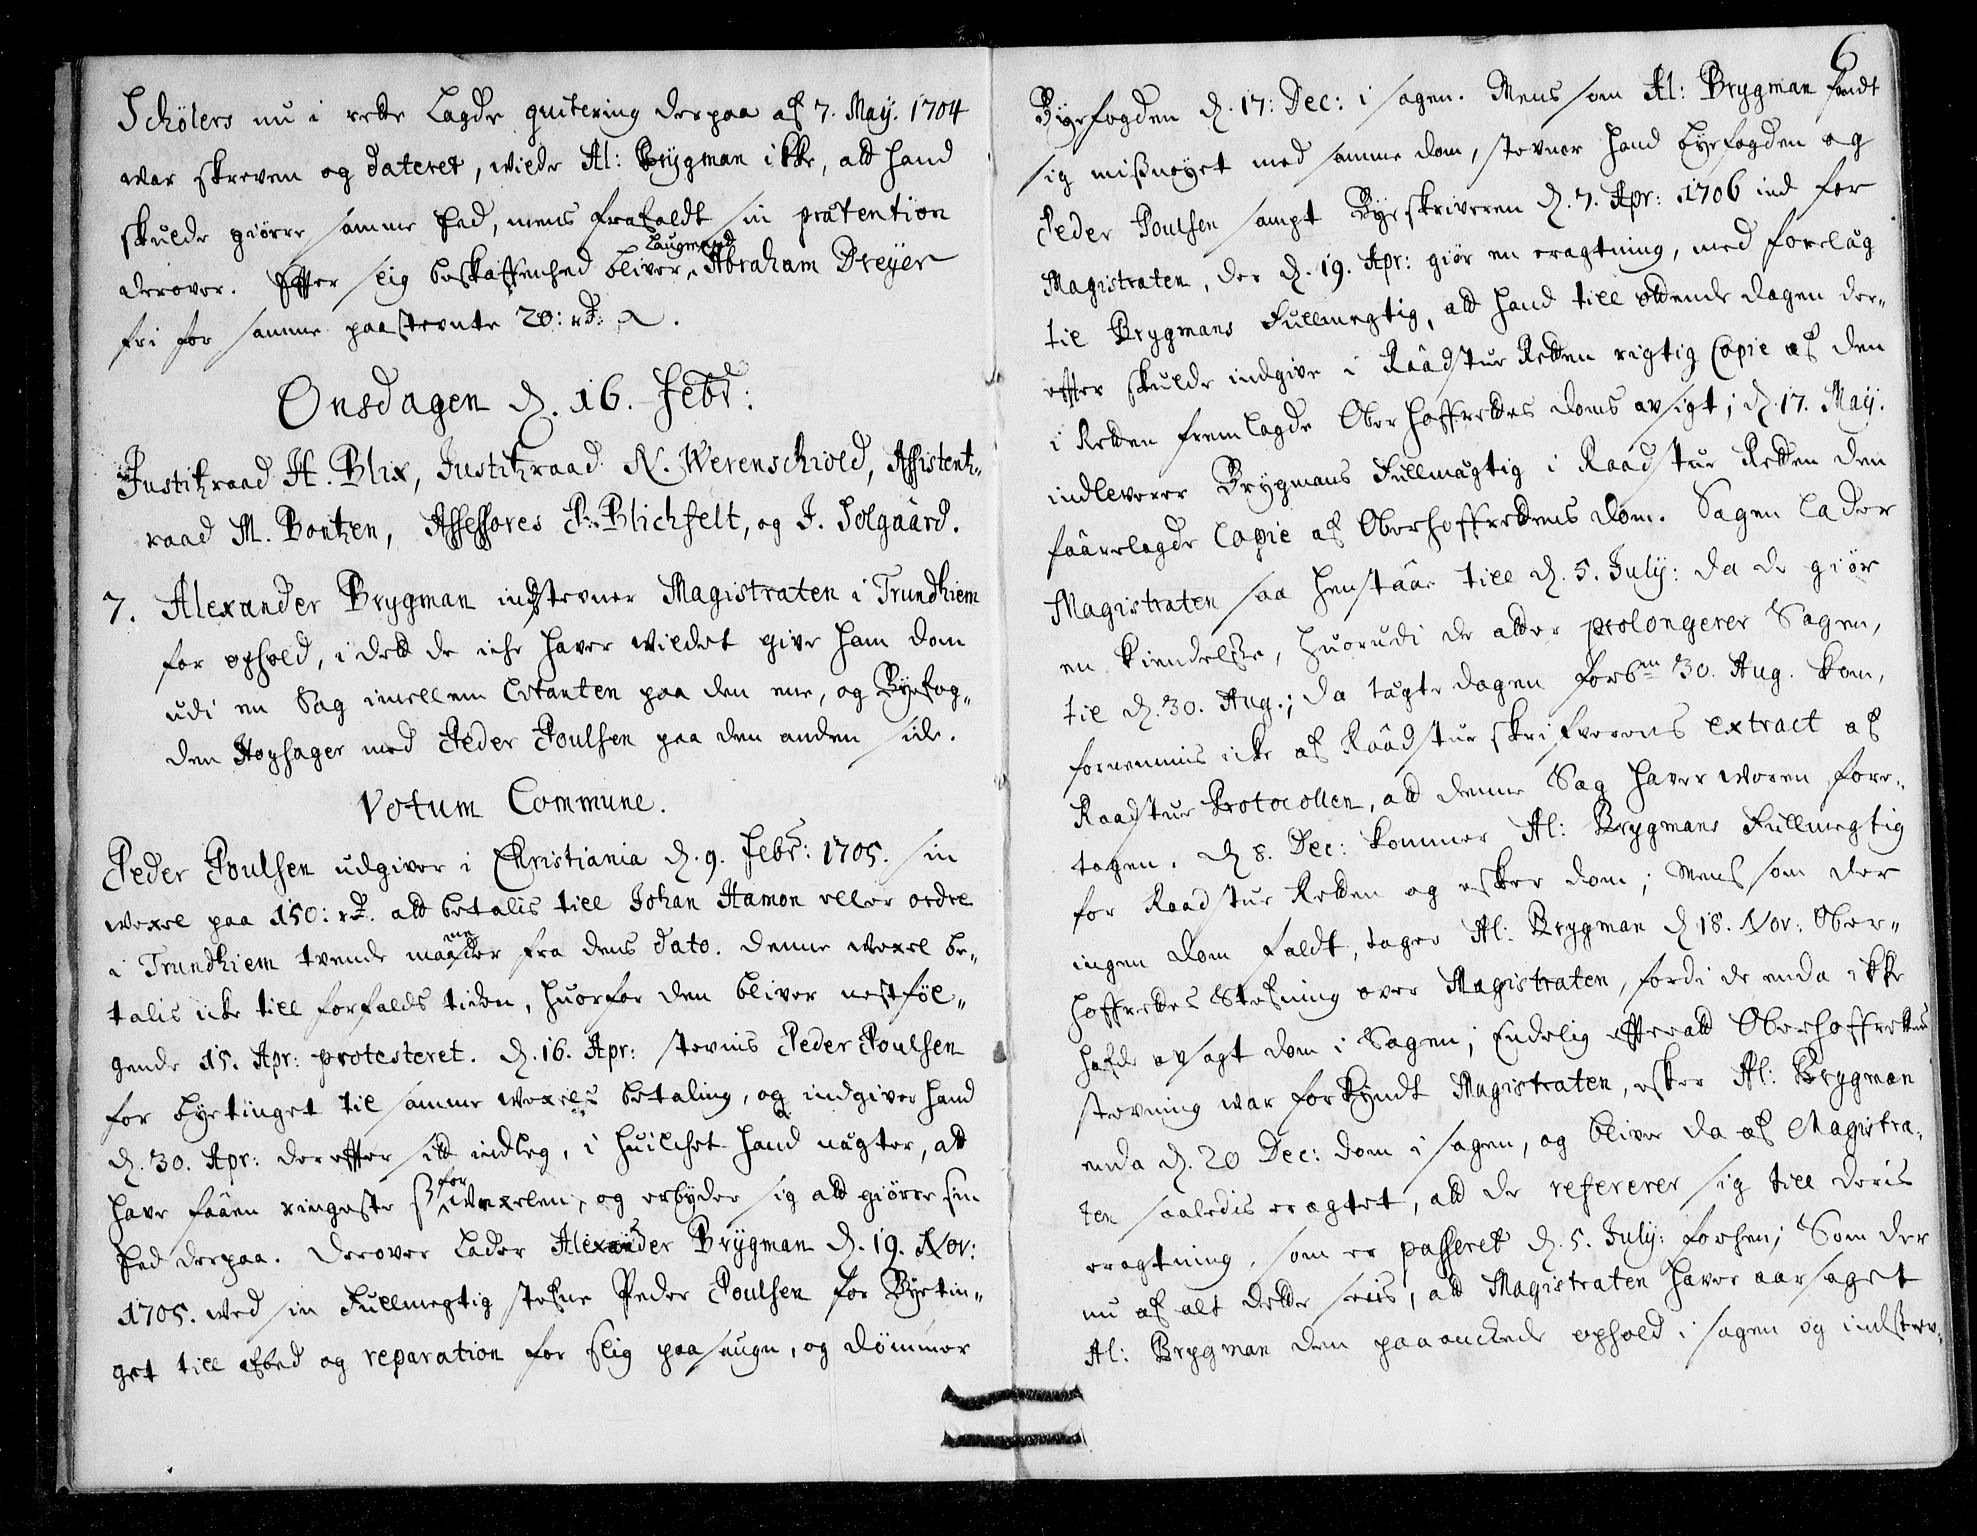 Schølers nu i rette lagde qvitering derpaa af 7. May. 1704
war skreven og dateret, wilde Al: Brygman ikke, att hand
skulde giøre samme Eed, mens frafaldt sin prætention
derover. Effter slig beskaffenhed bliver Laugmand Abraham Dreyer
fri for samme paastevnte 20: rd:
Onsdagen d. 16. Febr:
Justitzraad H. Blix, Justitzraad N. Werenschiold, Assistentz-
raad M. Bontzen, Assessores P. Blichfelt, og J. Solgaard.
7. Alexander Brygman indstevner Magistraten i Trundhiem
for ophold, i dett de iche haver wildet give ham dom
udi en Sag imellem Citanten paa den ene, og Byefog-
den Hopsager med Peder Poulsen paa den anden side.
Votum Commune.
Peder Poulsen udgiver i Christiania d. 9. Febr: 1705. sin
wexel paa 150: rd. att betalis till Johan Hamon eller ordre
i Trundhiem tvende maaneder fra dens dato. Denne wexel be-
talis icke till forfalds tiden, huorfor den bliver nestføl-
gende 15. Apr: protesteret. d. 16. Apr: stevnis Peder Poulsen
for byetinget til samme wexels betaling, og indgiver hand
d. 30. Apr: dereffter sitt indleg, i huilchet hand nægter, att
have faaen ringeste for wexelen, og erbyder sig att giøre sin
Eed derpaa. Derover lader Alexander Brygman d. 19. Nov:
1705. wed sin Fuldmegtig stefne Peder Poulsen for Byetin-
get till afbed og reparation for slig paasaugn, og dømmer
6
Byefogden d. 17: Dec: i sagen. Mens som Al: Brygman fandt
sig misnøyet med samme dom, stevner hand byefogden og
Peder Poulsen sampt Byeskriveren d. 7. Apr: 1706 ind for
Magistraten, der d. 19. Apr: giør en eragtning, med forelæg
til Brygmans Fullmegtig, att hand till ottende dagen der-
effter skulde indgive i Raadstue Retten rigtig Copie af den
i Retten fremlagde Oberhoffrettes doms avsigt; d. 17. May.
indleverer Brygmans Fullmægtig i Raadstue Retten den
faarelagde Copie af Oberhoffrettens dom. Sagen lader
Magistraten saa henstaae till d. 5. July: da de giør
en kiendelse, huorudi de atter prolongerer Sagen,
til d. 30. Aug.; da tægte dagen forben 30. Aug. kom,
fornemmis icke af Raadstue skrifverens extract af
Raadstue Protocollen, att denne Sag haver woren fore-
tagen. d 8. Dec: kommer Al: Brygmans Fullmegtig
for Raadstue Retten og esker dom; Mens som der
ingen dom faldt, tager Al: Brygman d 18. Nov: Ober-
hoffrettes Stefning over Magistraten, fordi de enda ikke
hafde avsagt dom i Sagen; Endelig effteratt Oberhoffrettens
stevning war forkyndt Magistraten, esker Al: Brygman
enda d. 20 Dec: dom i sagen, og bliver da af Magistra-
ten saaledis eragtet, att de refererer sig till deris
eragtning, som er passeret d. 5. July: forhen; Som der
nu af alt dette sees, att Magistraten haver aarsaget
Al: Brygman den paaanckede ophold i sagen og indstev-